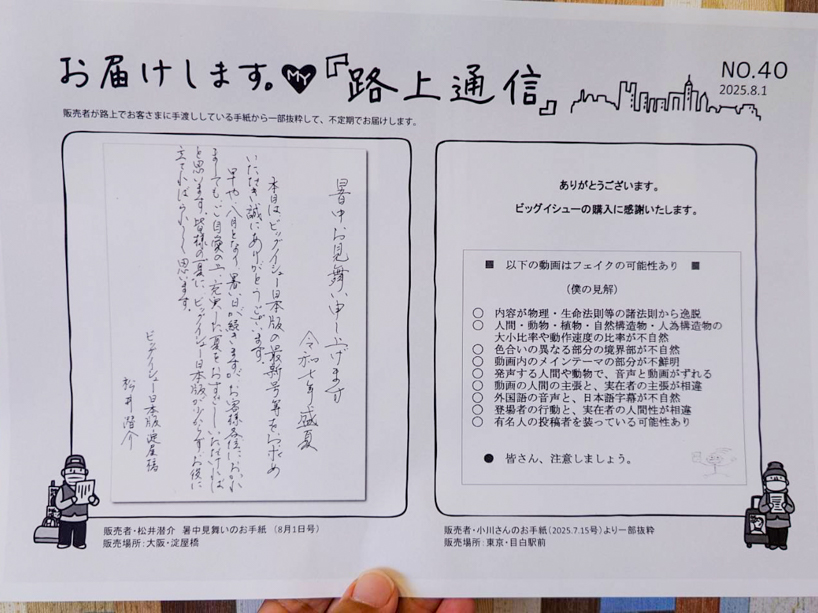 お届けします。MY『路上通信』
NO.40
2025.8.1
販売者が路上でお客さまに手渡ししている手紙から一部抜粋して、不定期でお届けします。
暑中お見舞い申し上げます
令和七年 盛夏
本日は、ビッグイシュー日本版の最新号等をお求め
いただき誠にありがとうございます。
早や八月となり暑い日が続きますが、お客様各位におかれ
ましても、ご自愛の上、充実した夏をおすごしいただければ
と思います。皆様の夏に、ビッグイシュー日本版が少なからず、お役に
立てればうれしく思います。
ビッグイシュー日本版 淀屋橋
松井潜介
販売者・松井潜介 暑中見舞いのお手紙（8月1日号）
販売場所：大阪・淀屋橋
ありがとうございます。
ビッグイシューの購入に感謝いたします。
■ 以下の動画はフェイクの可能性あり ■
（僕の見解）
○ 内容が物理・生命法則等の諸法則から逸脱
○ 人間・動物・植物・自然構造物・人為構造物の
大小比率や動作速度の比率が不自然
○ 色合いの異なる部分の境界部が不自然
○ 動画内のメインテーマの部分が不鮮明
○ 発声する人間や動物で、音声と動画がずれる
○ 動画の人間の主張と、実在者の主張が相違
○ 外国語の音声と、日本語字幕が不自然
○ 登場者の行動と、実在者の人間性が相違
○ 有名人の投稿者を装っている可能性あり
● 皆さん、注意しましょう。
販売者・小川さんのお手紙（2025.7.15号）より一部抜粋
販売場所：東京・目白駅前